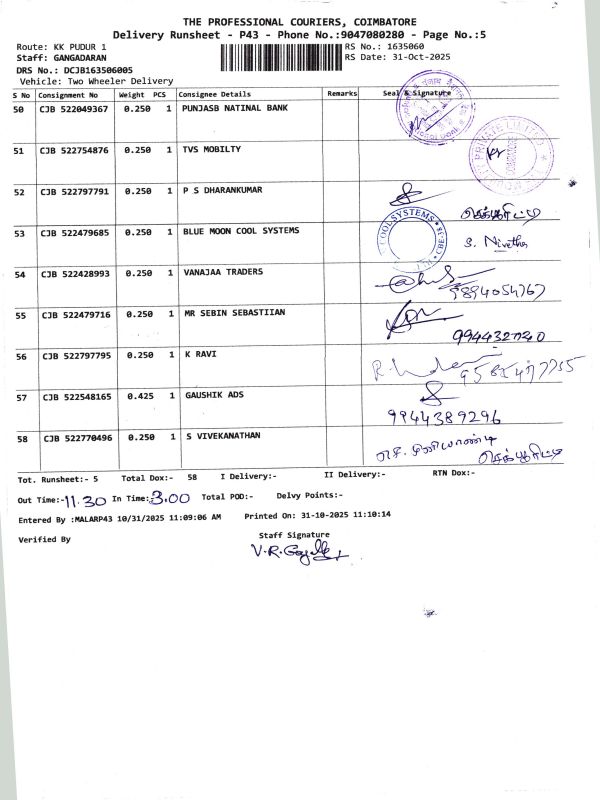 THE PROFESSIONAL COURIERS, COIMBATORE
Delivery Runsheet - P43 - Phone No.:9047080280 - Page No.:5
Route: KK PUDUR 1 RS No.: 1635060
Staff: GANGADARAN RS Date: 31-Oct-2025
DRS No.: DCJB163506005
Vehicle: Two Wheeler Delivery
S No Consignment No Weight PCS Consignee Details Remarks Seal & Signature
50 CJB 522049367 0.250 1 PUNJASB NATINAL BANK
51 CJB 522754876 0.250 1 TVS MOBILTY
52 CJB 522797791 0.250 1 P S DHARANKUMAR
செக்யூரிட்டி
53 CJB 522479685 0.250 1 BLUE MOON COOL SYSTEMS COOL SYSTEMS
S. Nivetha
54 CJB 522428993 0.250 1 VANAJAA TRADERS
9894054767
55 CJB 522479716 0.250 1 MR SEBIN SEBASTIIAN
56 CJB 522797795 0.250 1 K RAVI
57 CJB 522548165 0.425 1 GAUSHIK ADS
9944389296
58 CJB 522770496 0.250 1 S VIVEKANATHAN
செக்யூரிட்டி
Tot. Runsheet:- 5 Total Dox:- 58 I Delivery:- II Delivery:- RTN Dox:-
Out Time:-11.30 In Time:-3.00 Total POD:- Delvy Points:-
Entered By :MALARP43 10/31/2025 11:09:06 AM Printed On: 31-10-2025 11:10:14
Verified By Staff Signature